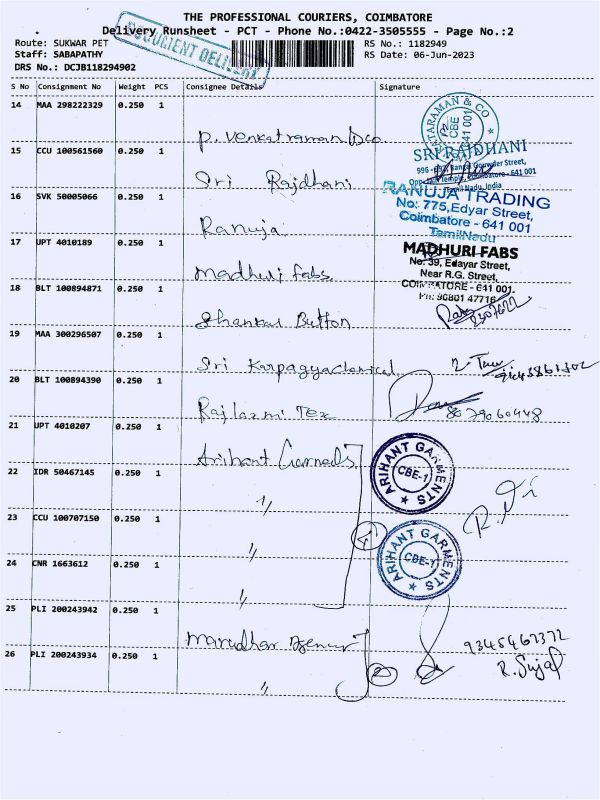 THE PROFESSIONAL COURIERS, COIMBATORE
Delivery Runsheet - PCT - Phone No.:0422-3505555 - Page No.:2
DOCUMENT DELIVERY
Route: SUKWAR PET
RS No.: 1182949
Staff: SABAPATHY
RS Date: 06-Jun-2023
DRS No.: DCJB118294902
S No Consignment No Weight PCS Consignee Details Signature
14 MAA 298222329 0.250 1
P. Venkatraman &co
VENKATARAMAN & CO
CBE 641 001
15 CCU 100561560 0.250 1
Sri Rajdhani
SRI RAJDHANI
Coimbatore - 641 001
Tamil Nadu, India
16 SVK 50005066 0.250 1
Ranuja
RANUJA TRADING
No: 775, Edyar Street,
Coimbatore - 641 001
TamilNadu
17 UPT 4010189 0.250 1
Madhuri fabs
MADHURI FABS
No: 39, Edayar Street,
Near R.G. Street,
COIMBATORE - 641 001.
Ph: 90801 47716
18 BLT 100894871 0.250 1
Shankar Button
19 MAA 300296507 0.250 1
Sri Karpagya
20 BLT 100894390 0.250 1
Rajlaxmi Tex
8079060448
21 UPT 4010207 0.250 1
Arihant Garments
ARIHANT GARMENTS
CBE-1
22 IDR 50467145 0.250 1
"
23 CCU 100707150 0.250 1
"
ARIHANT GARMENTS
CBE-1
24 CNR 1663612 0.250 1
"
25 PLI 200243942 0.250 1
Marudhar
9345467372
R. Sujal
26 PLI 200243934 0.250 1
"
2